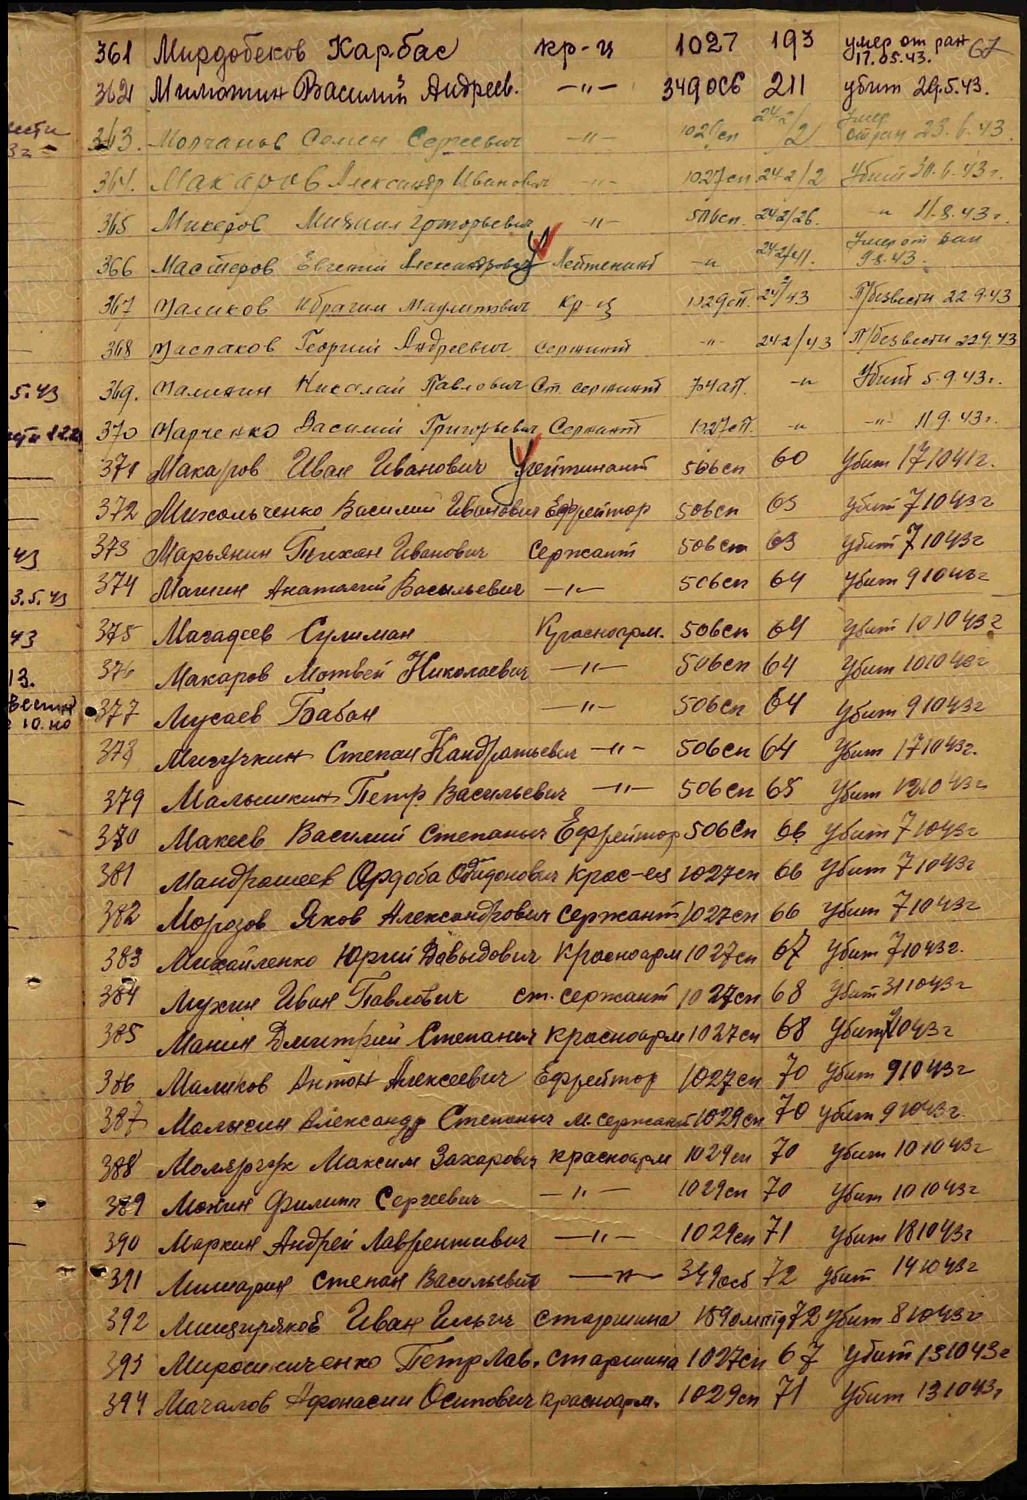 67
361 Мирдобеков Карбас кр-ц 1027 193 умер от ран 17.05.43.
362 Милютин Василий Андреев. —"— 349 осб 211 убит 29.5.43.
363. Молчанов Семен Сергеевич —"— 1027сп 242/2 Умер от ран 23.6.43.
364. Макаров Александр Иванович —"— 1027сп 242/2 Убит 30.6.43г.
365 Микеров Михаил Григорьевич —"— 506сп. 242/26. —"— 11.8.43г.
366 Мастеров Евгений Александрович Лейтенант —"— 242/41. Умер от ран 9.8.43.
367 Маликов Ибрагим кр-ц 1029сп. 242/43 П/безвести 22.9.43
368 Маслаков Георгий Андреевич Сержант —"— 242/43 П/безвести 22.9.43
369. Малинин Николай Павлович Ст. сержант 704ап. —"— Убит 5.9.43г.
370 Марченко Василий Григорьевич Сержант 1027сп. —"— —"— 11.9.43г.
371 Макаров Иван Иванович Лейтинант 506сп 60 Убит 171041г.
372 Михольченко Василий Иванович Ефрейтор 506сп 63 убит 71043г
373 Марьянин Тихон Иванович Сержант 506сп 63 убит 71043г
374 Машин Анатолий Васильевич —"— 506сп 64 убит 91043г
375 Магадеев Сулиман Красноарм. 506сп 64 убит 101043г
376 Макаров Мотвей Николаевич —"— 506сп 64 убит 101043г
377 Мусаев Бабан —"— 506сп 64 убит 91043г
378 Мичучкин Степан Кандратьевич —"— 506сп 64 убит 171043г.
379 Малышкин Петр Васильевич —"— 506сп 65 убит 121043г
370 Макеев Василий Степаныч Ефрейтор 506сп 66 убит 71043г
381 Мандрашеев Ордоба Крас-ец 1027сп 66 убит 71043г
382 Морозов Яков Александрович Сержант 1027сп 66 убит 71043г
383 Михайленко Юрий Давыдович Красноарм 1027сп 67 убит 71043г.
384 Мухин Иван Павлович ст. сержант 1027сп 68 убит 311043г
385 Манин Дмитрий Степаныч красноарм 1027сп 68 убит 1043г
386 Маликов Антон Алексеевич Ефрейтор 1027сп 70 убит 91043г
387 Малысин Александр Степаныч м. сержант 1029сп 70 убит 91043г.
388 Молярчук Максим Захарович красноарм 1029сп 70 убит 101043г
389 Мохин Филипп Сергеевич —"— 1029сп 70 убит 101043г
390 Маркин Андрей Лаврентивич —"— 1029сп 71 убит 181043г
391 Мишарин Степан Васильевич —"— 349осб 72 убит 141043г
392 Мищиряков Иван Ильич старшина 189омптд 72 убит 81043г
393 Мирошниченко Петр Лав. старшина 1027сп 67 убит 131043г
394 Мачалов Афонасий Осипович красноарм. 1029сп 71 убит 131043г